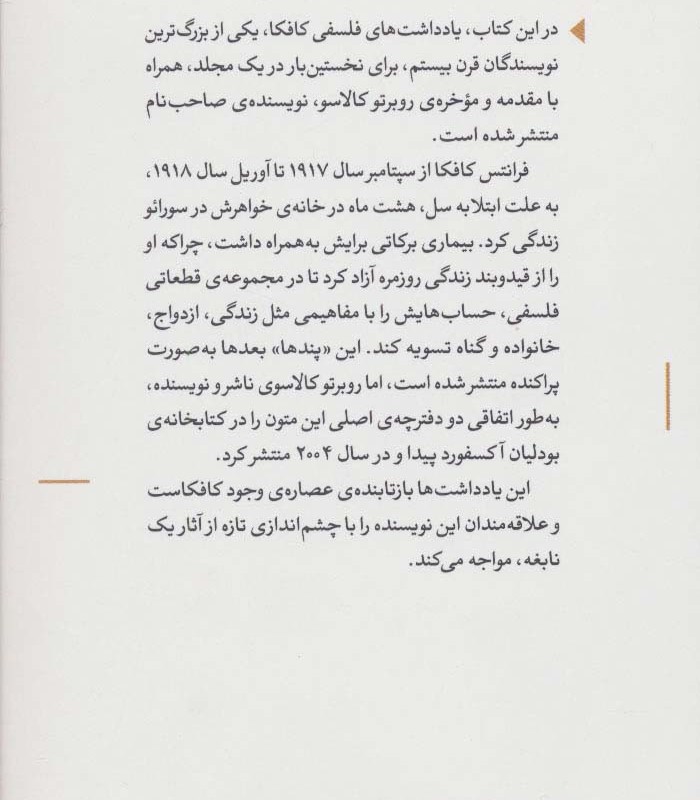 در این کتاب، یادداشت‌های فلسفی کافکا، یکی از بزرگ‌ترین
نویسندگان قرن بیستم، برای نخستین‌بار در یک مجلد، همراه
با مقدمه و مؤخره‌ی روبرتو کالاسو، نویسنده‌ی صاحب‌نام
منتشر شده است.
فرانتس کافکا از سپتامبر سال ۱۹۱۷ تا آوریل سال ۱۹۱۸،
به علت ابتلا به سل، هشت ماه در خانه‌ی خواهرش در سورائو
زندگی کرد. بیماری برکاتی برایش به‌همراه داشت، چراکه او
را از قیدوبند زندگی روزمره آزاد کرد تا در مجموعه‌ی قطعاتی
فلسفی، حساب‌هایش را با مفاهیمی مثل زندگی، ازدواج،
خانواده و گناه تسویه کند. این «پندها» بعدها به‌صورت
پراکنده منتشر شده است، اما روبرتو کالاسوی ناشر و نویسنده،
به‌طور اتفاقی دو دفترچه‌ی اصلی این متون را در کتابخانه‌ی
بودلیان آکسفورد پیدا و در سال ۲۰۰۴ منتشر کرد.
این یادداشت‌ها بازتابنده‌ی عصاره‌ی وجود کافکاست
و علاقه‌مندان این نویسنده را با چشم‌اندازی تازه از آثار یک
نابغه، مواجه می‌کند.